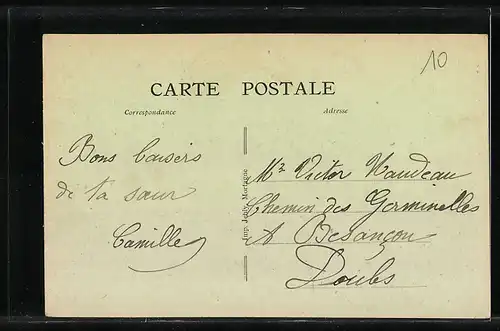 10
CARTE POSTALE
Correspondance
Adresse
Bons baisers
de ta sœur
Camille
Imp. Jobly, Mortagne
Mr Victor Naudeau
Chemin des Germinelles
A Besançon
Doubs